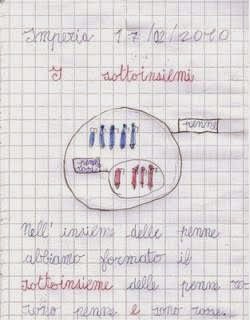 Imperia 17/02/2010
I sottoinsiemi
penne
penne rosse
Nell' insieme delle penne
abbiamo formato il
sottoinsieme delle penne ro
sono penne e sono rosse.